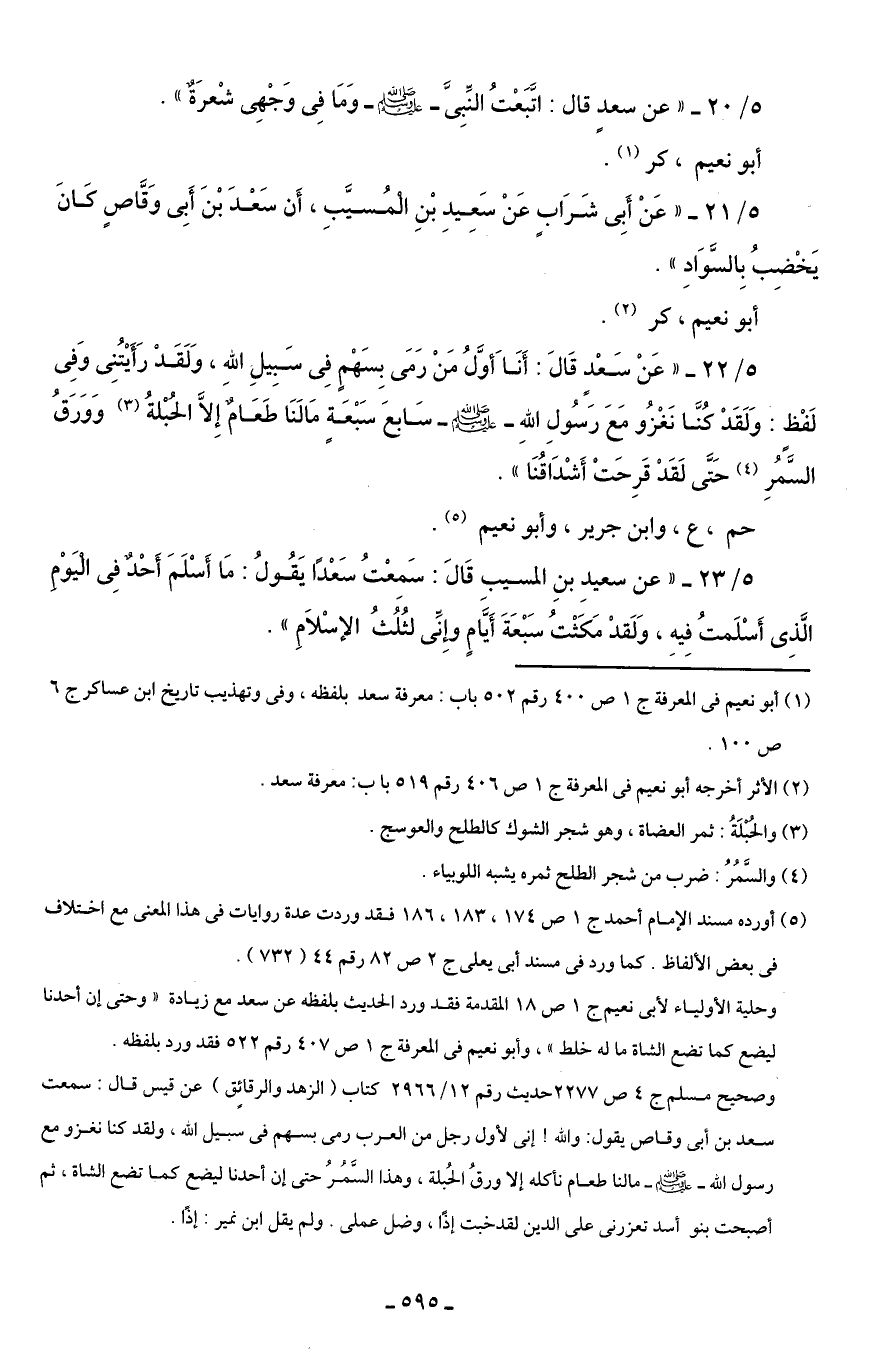 ٥/ ٢٠ ـ « عن سعدٍ قال : اتَّبَعْتُ النَّبِىَّ ـ ﷺ ـ وَمَا فِى وَجْهِى شَعْرَةٌ » .
أبو نعيم ، كر (١) .
٥/ ٢١ ـ « عَنْ أَبِى شَرَابٍ عَنْ سَعِيدِ بْنِ الْمُسيَّبِ ، أَن سَعْدَ بْنَ أَبِى وَقَّاصٍ كَانَ
يَخْضِبُ بِالسَّوَادِ » .
أبو نعيم ، كر (٢) .
٥/ ٢٢ ـ « عَنْ سَعْدٍ قَالَ : أَنَا أَوَّلُ مَنْ رَمَى بِسَهْمٍ فِى سَبِيلِ اللهِ ، وَلَقَدْ رَأَيْتُنِى وَفِى
لَفْظٍ : وَلَقَدْ كُنَّا نَغْزُو مَعَ رَسُولِ اللهِ ـ ﷺ ـ سَابِعَ سَبْعَةٍ مَالَنَا طَعَامٌ إِلاَّ الحُبْلةُ (٣) وَوَرَقُ
السَّمُرِ (٤) حَتَّى لَقَدْ قَرِحَتْ أَشْدَاقُنَا » .
حم ، ع ، وابن جرير ، وأبو نعيم (٥) .
٥/ ٢٣ ـ « عن سعيدِ بنِ المسيبِ قَالَ : سَمِعْتُ سَعْدًا يَقُولُ : مَا أَسْلَمَ أَحْدٌ فِى الْيَوْمِ
الَّذِى أَسْلَمتُ فِيهِ ، وَلَقدْ مَكَثْتُ سَبْعَةَ أَيَّامٍ وإِنِّى لثُلُثُ الإِسْلاَمِ » .
(١) أبو نعيم فى المعرفة ج ١ ص ٤٠٠ رقم ٥٠٢ باب : معرفة سعد بلفظه ، وفى وتهذيب تاريخ ابن عساكر ج ٦
ص ١٠٠ .
(٢) الأثر أخرجه أبو نعيم فى المعرفة ج ١ ص ٤٠٦ رقم ٥١٩ با ب: معرفة سعد .
(٣) والحُبْلَةُ : ثمر العضاة ، وهو شجر الشوك كالطلح والعوسج .
(٤) والسَّمُرُ : ضرب من شجر الطلح ثمره يشبه اللوبياء .
(٥) أورده مسند الإمام أحمد ج ١ ص ١٧٤ ، ١٨٣ ، ١٨٦ فقد وردت عدة روايات فى هذا المعنى مع اختلاف
فى بعض الألفاظ . كما ورد فى مسند أبى يعلى ج ٢ ص ٨٢ رقم ٤٤ ( ٧٣٢ ) .
وحلية الأولياء لأبى نعيم ج ١ ص ١٨ المقدمة فقد ورد الحديث بلفظه عن سعد مع زيادة « وحتى إن أحدنا
ليضع كما تضع الشاة ما له خلط » ، وأبو نعيم فى المعرفة ج ١ ص ٤٠٧ رقم ٥٢٢ فقد ورد بلفظه .
وصحيح مسلم ج ٤ ص ٢٢٧٧حديث رقم ١٢/ ٢٩٦٦ كتاب ( الزهد والرقائق ) عن قيس قال : سمعت
سعد بن أبى وقاص يقول: والله ! إنى لأول رجل من العرب رمى بسهم فى سبيل الله ، ولقد كنا نغزو مع
رسول الله ـ ﷺ ـ مالنا طعام نأكله إلا ورقُ الحُبلة ، وهذا السَّمُرُ حتى إن أحدنا ليضع كما تضع الشاة ، ثم
أصبحت بنو أسد تعزرنى على الدين لقدخبت إذًا ، وضل عملى . ولم يقل ابن نمير : إذًا .
ـ ٥٩٥ ـ